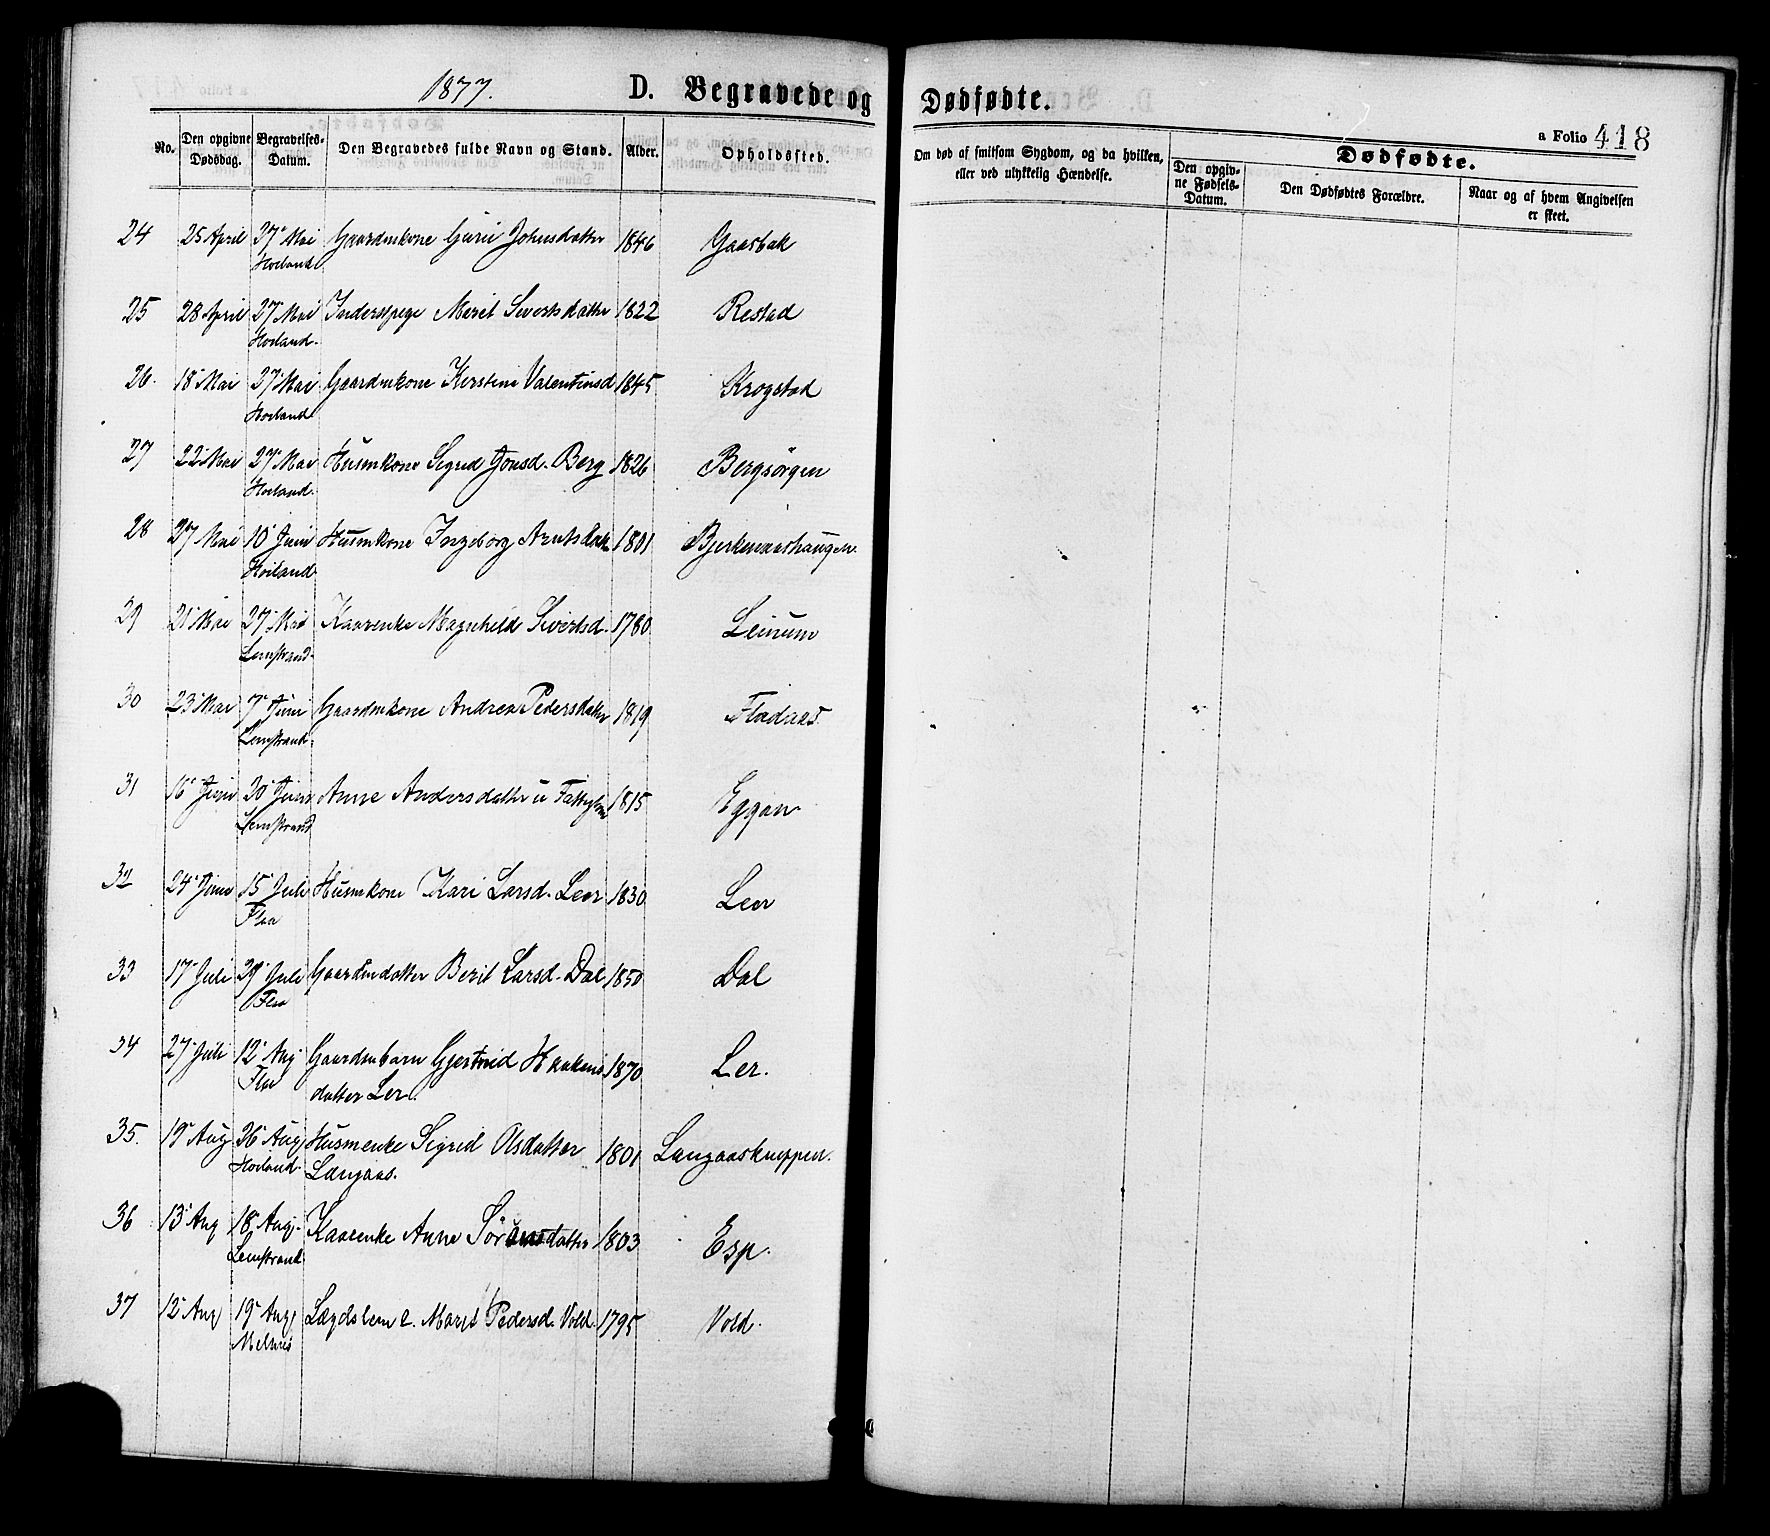 1877.
D. Begravede og Dødfødte.
a Folio 418
No. Den opgivne Dødsdag. Begravelses-Datum. Den Begravedes fulde Navn og Stand. Alder. Opholdssted.
Om død af smitsom Sygdom, og da hvilken, eller ved ulykkelig Hændelse.
Dødfødte.
Den opgivne Fødsels-Datum. Den Dødfødtes Forældre. Naar og af hvem Angivelsen er skeet.
24 25 April 27 Mai Gaardmkone Guru Johnsdatter 1846 Gaasbak
Horland
25 28 April 27 Mai Inderstpige Merit Sivertsdatter 1822 Restad
Horland.
26. 18 Mai 27 Mai Gaardmkone Kerstine Valentinsd 1845 Krogstad
Horland
27 22 Mai 27 Mai Husmkone Sigrid Jonsd. Berg 1826 Bergsørgen
Horland.
28 27 Mai 10 Juni Husmkone Ingeborg Arntsdatt 1801 Bjerkenaashaugen.
Hoiland
29 21 Mai 27 Mai Kaarenke Magnhild Sivertsd. 1780 Leinum
Lemstrand.
30 23 Mai 7 Juni Gaardmkone Andrea Pedersdatter 1819 Flodaas
Lemstrand.
31 16 Juni 20 Juni Anne Andersdatter u Fattiglem 1815 Eggan
Lemstrand
32 24 Juni 15 Juli Husmkone Kari Larsd. Leer 1830 Leer
Flaa
33 17 Juli 29 Juli Gaardmdatter Berit Larsd. Dal 1850 Dal
Flaa
34 27 Juli 12 Aug Gaardmbarn Gjertrud Haakens 1870 Ler.
Flaa datter Ler.
35. 19 Aug 26 Aug Husmenke Sigrid Olsdatter 1801 Langaasknippen.
Horland. Langaas.
36 13 Aug 18 Aug. Kaarenke Anne Sørensdatter 1803 Esp.
Lemstrand
37 12 Aug 19 Aug Lægdslem e. Marit Pedersd. Vold. 1795 Vold.
Melhus